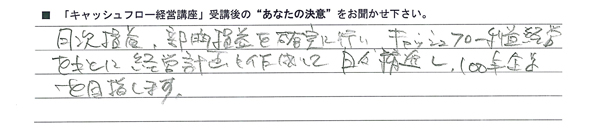 ■ 「キャッシュフロー経営講座」受講後の“あなたの決意”をお聞かせ下さい。
月次損益、部門損益を確実に行い キャッシュフロー経営
をもとに 経営計画を作成して 日々精進し、100年企業
を目指します。